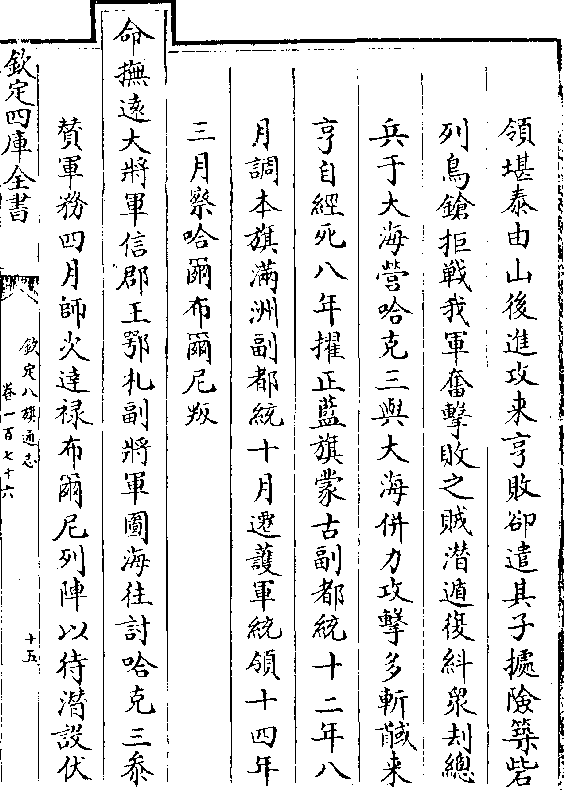 領堪泰由山後進攻来亨敗卻遣其子據險築砦
列鳥鎗拒戰我軍奮擊敗之賊潛遁復糾眾刦總
兵于大海營哈克三與大海併力攻擊多斬馘来
亨自經死八年擢正藍旗蒙古副都統十二年八
月調本旗滿洲副都統十月遷護軍統領十四年
三月察哈爾布爾尼叛
命撫遠大將軍信郡王鄂札副將軍圖海往討哈克三叅
賛軍務四月師次達禄布爾尼列陣以待潛設伏
欽定四庫全書
欽定八旗通志
卷一百七十六
十五